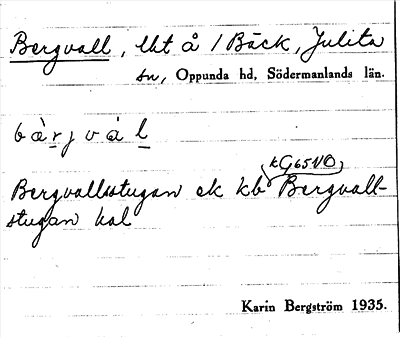 Bergvall, lht å 1 Bäck, Julita
sn, Oppunda hd, Södermanlands län.
bàrjvàl
kG65NO
Bergvallsstugan ek kb Bergvall-
stugan hal
Karin Bergström 1935.